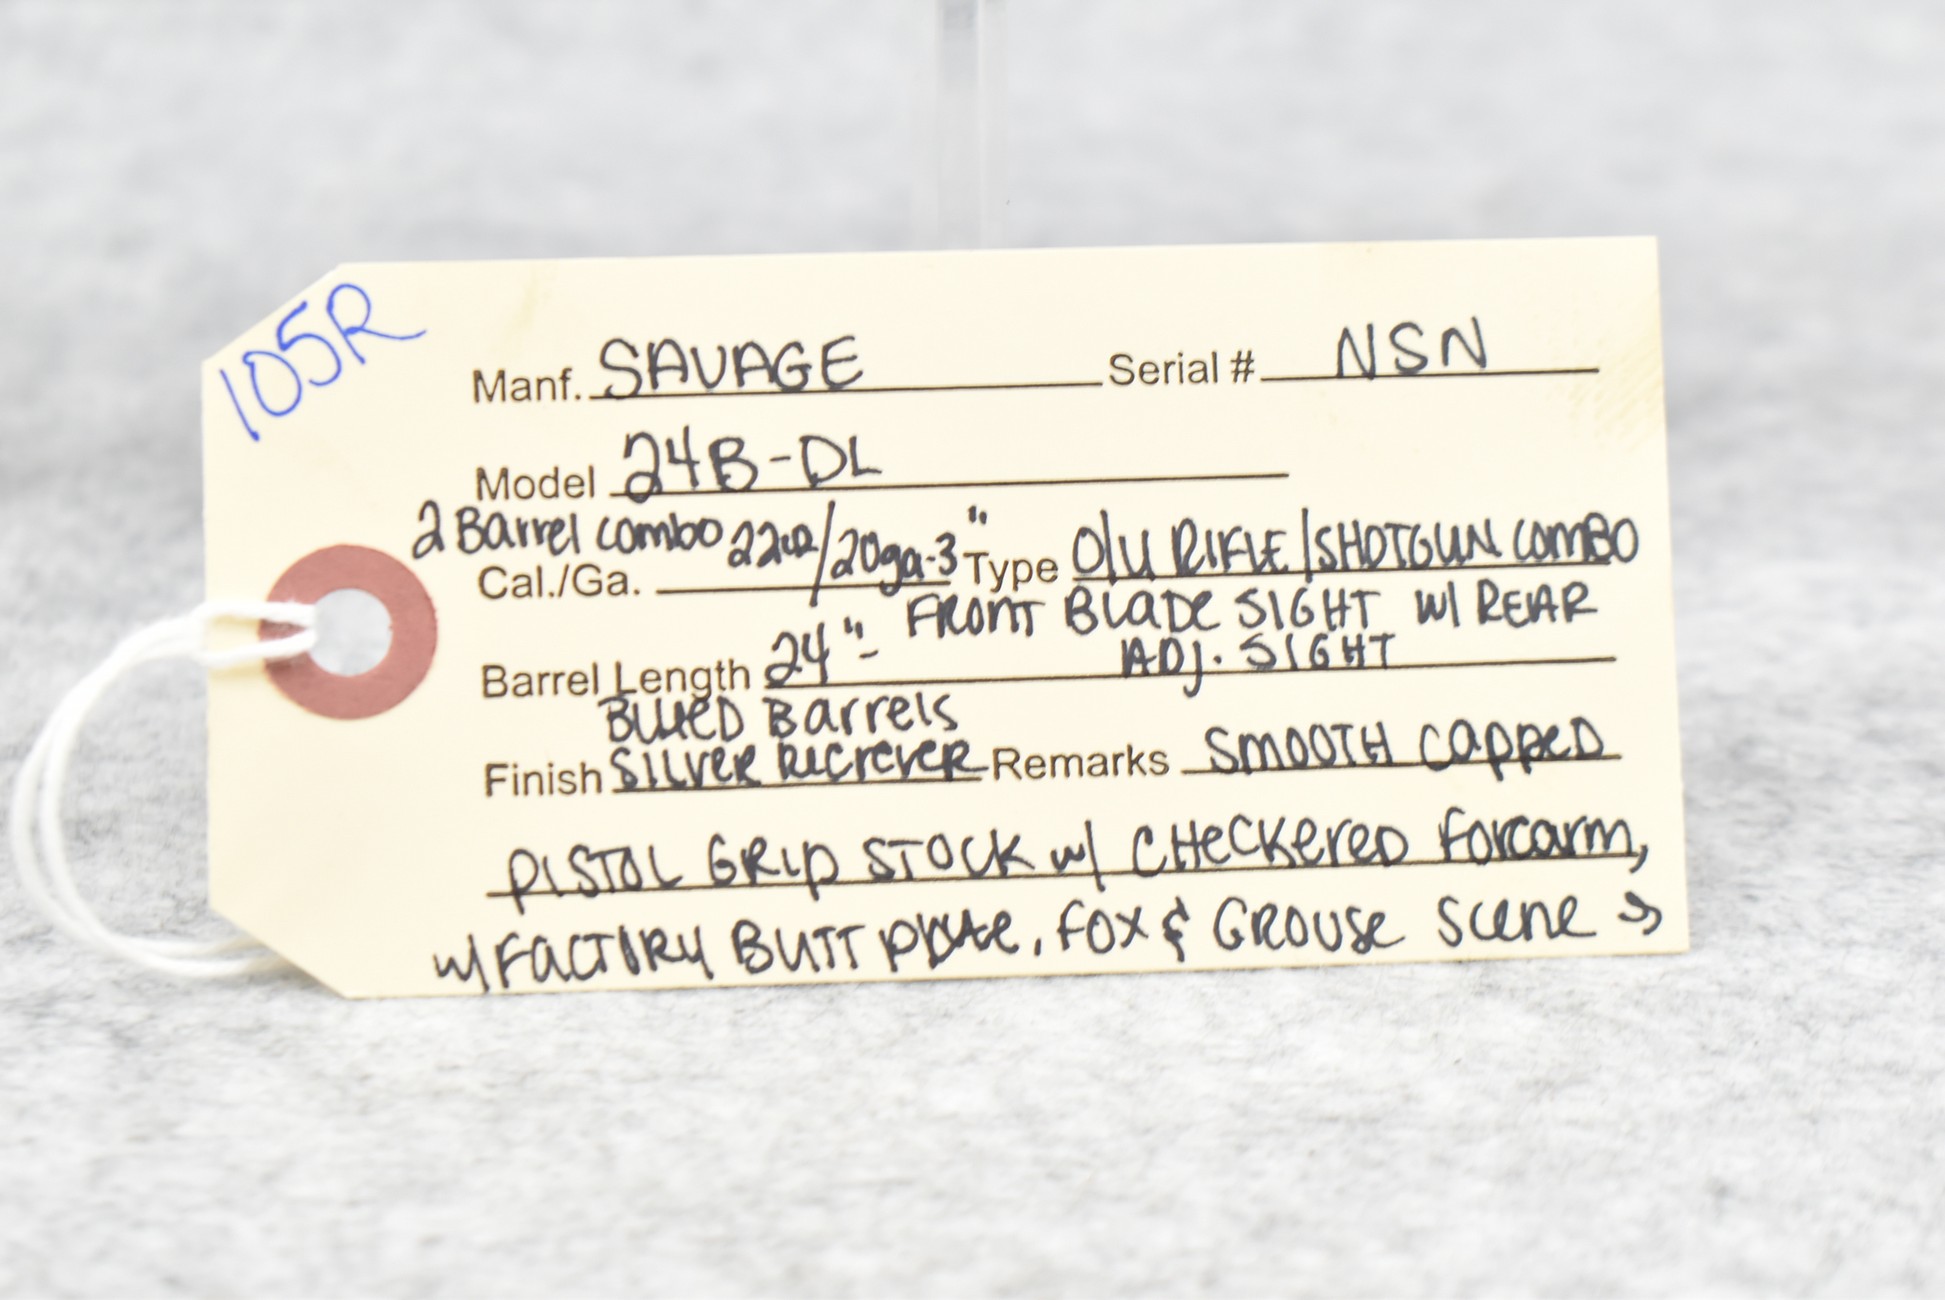 105R
Manf. SAVAGE Serial # NSN
Model 24B-DL
2 Barrel combo 22LR/20ga-3"
Cal./Ga. Type O/U RIFLE/SHOTGUN COMBO
FRONT BLADE SIGHT W/ REAR
Barrel Length 24"- ADJ. SIGHT
BLUED Barrels
Finish SILVER RECIEVER Remarks SMOOTH CAPPED
PISTOL GRIP STOCK w/ CHECKERED Forearm,
w/ FACTORY BUTT PLATE, FOX & GROUSE SCENE →